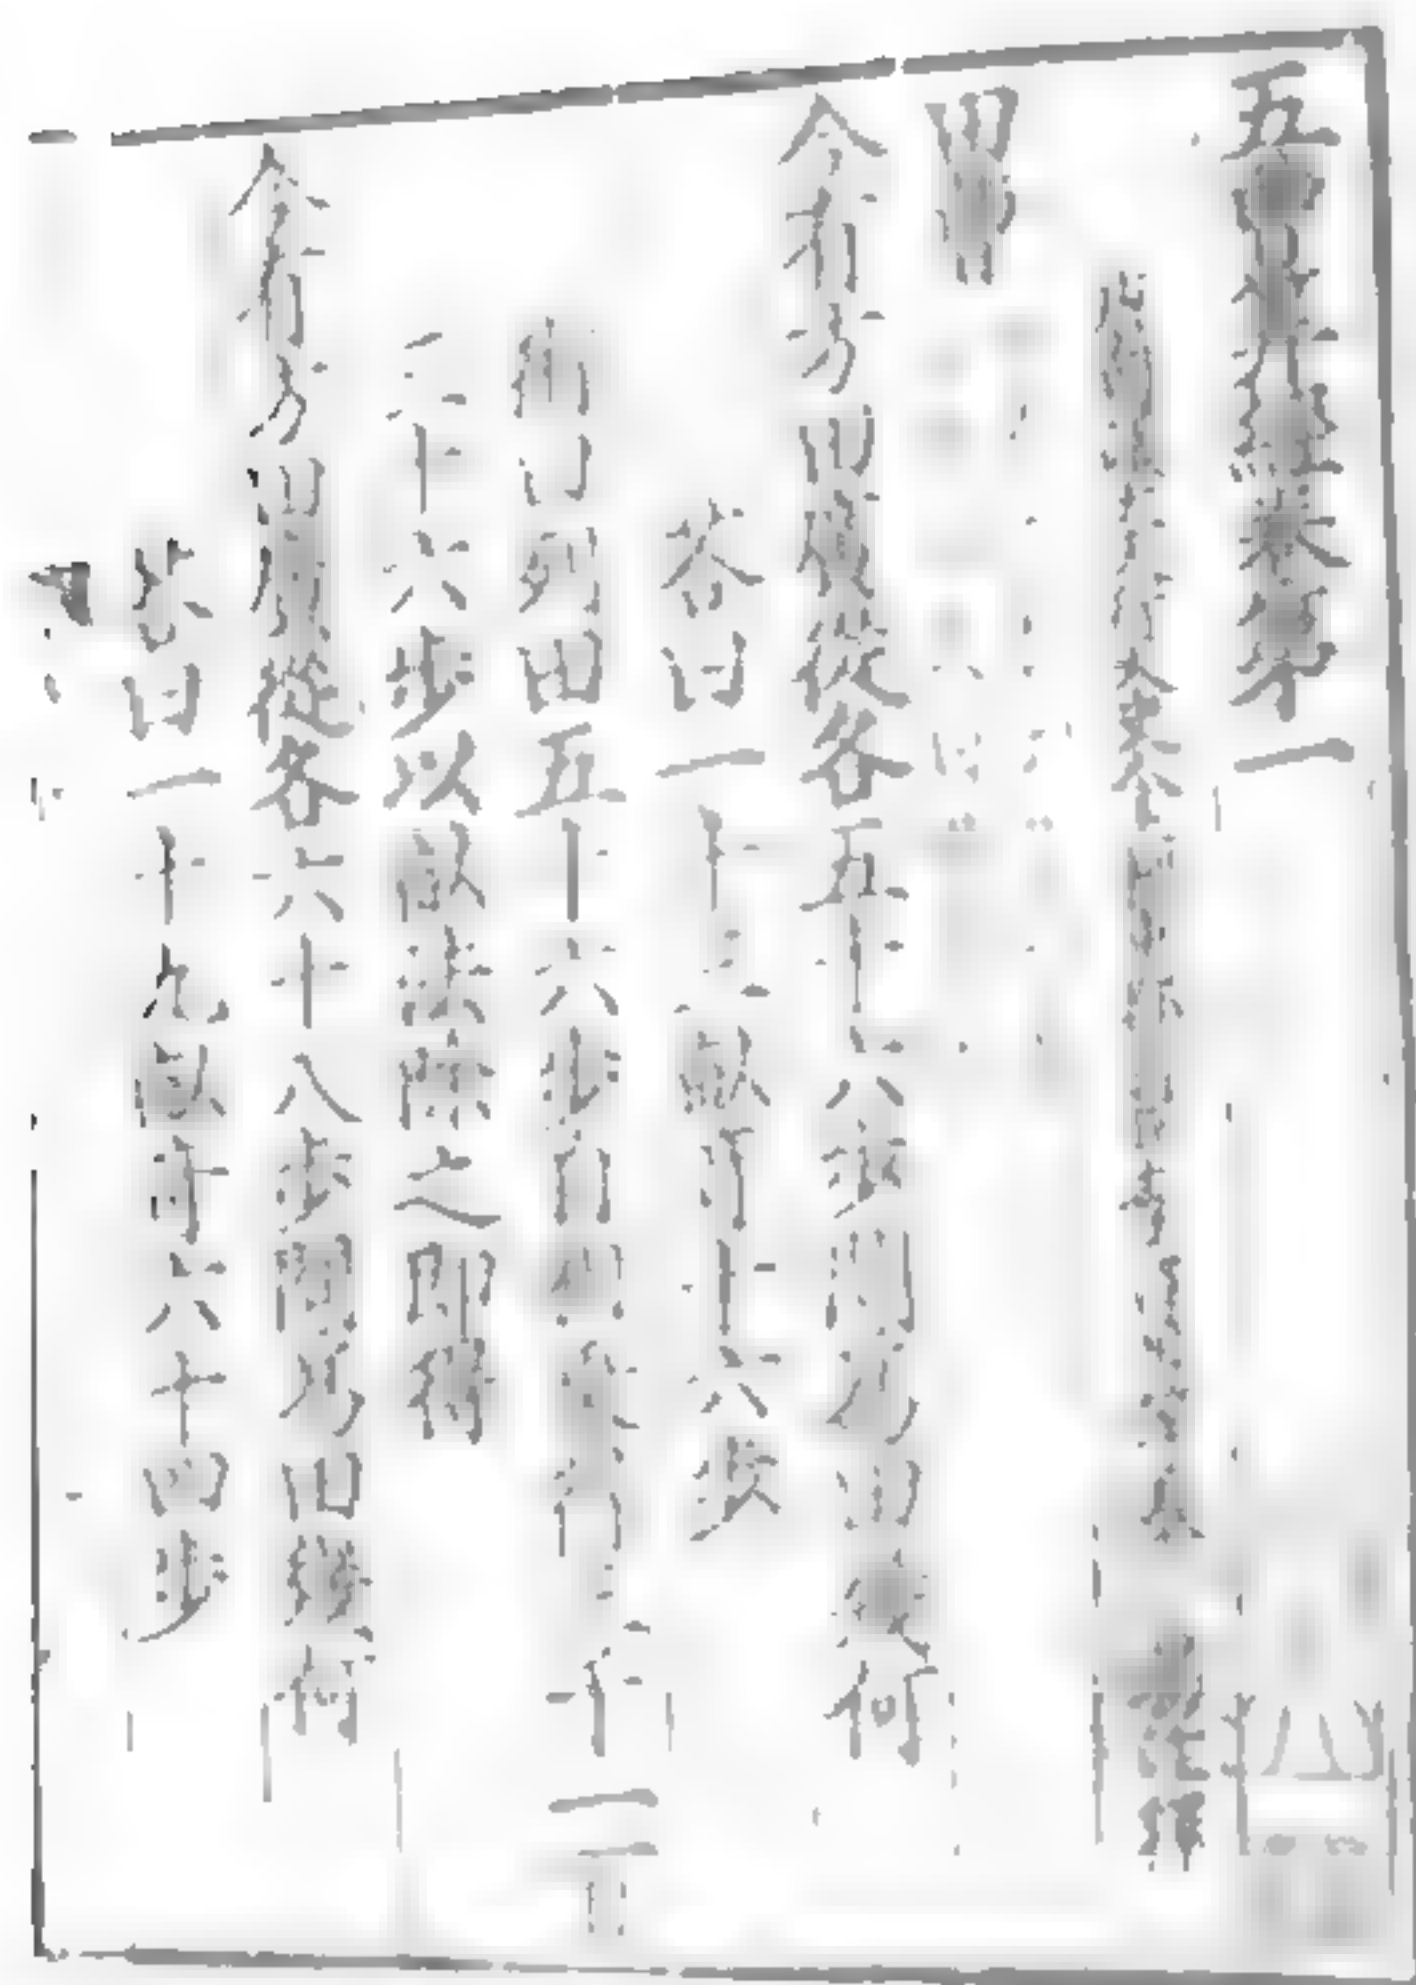 五曹算經卷第一
行太史令 奉 敕注釋
田曹
今有方田廣從各五十六步問為田幾何
答曰一十三畝奇一十六步
術曰列田五十六步自相乘得三千一百
三十六步以畝法除之即得
今有方田廣從各六十八步問為田幾何
答曰一十九畝奇六十四步